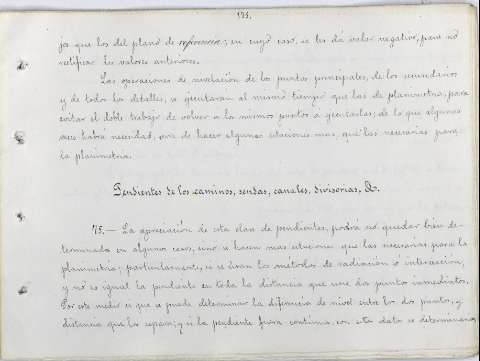 175.
jos que los del plano de referencia; en cuyo caso, se les dá valor negativo, para no
rectificar los valores anteriores.
Las operaciones de nivelación de los puntos principales, de los secundarios
y de todos los detalles, se ejecutarán al mismo tiempo que las de planimetria, para
evitar el doble trabajo de volver a los mismos puntos a ejecutarlas; de lo que algunas
veces habrá necesidad, será de hacer algunas estaciones mas, que las necesarias para
la planimetria.
Pendientes de los caminos, sendas, canales, divisorias, &.
75.— La apreciación de esta clase de pendientes, podrá no quedar bien de-
terminada en algunos casos, sino se hacen mas estaciones que las necesarias para la
planimetria; particularmente, si se usan los métodos de radiación ó intersección,
y no es igual la pendiente en toda la distancia que une dos puntos inmediatos.
Por este medio si que se puede determinar la diferencia de nivel entre los dos puntos, y
distancia que los separa; y si la pendiente fuera continua, con estos datos se determinara